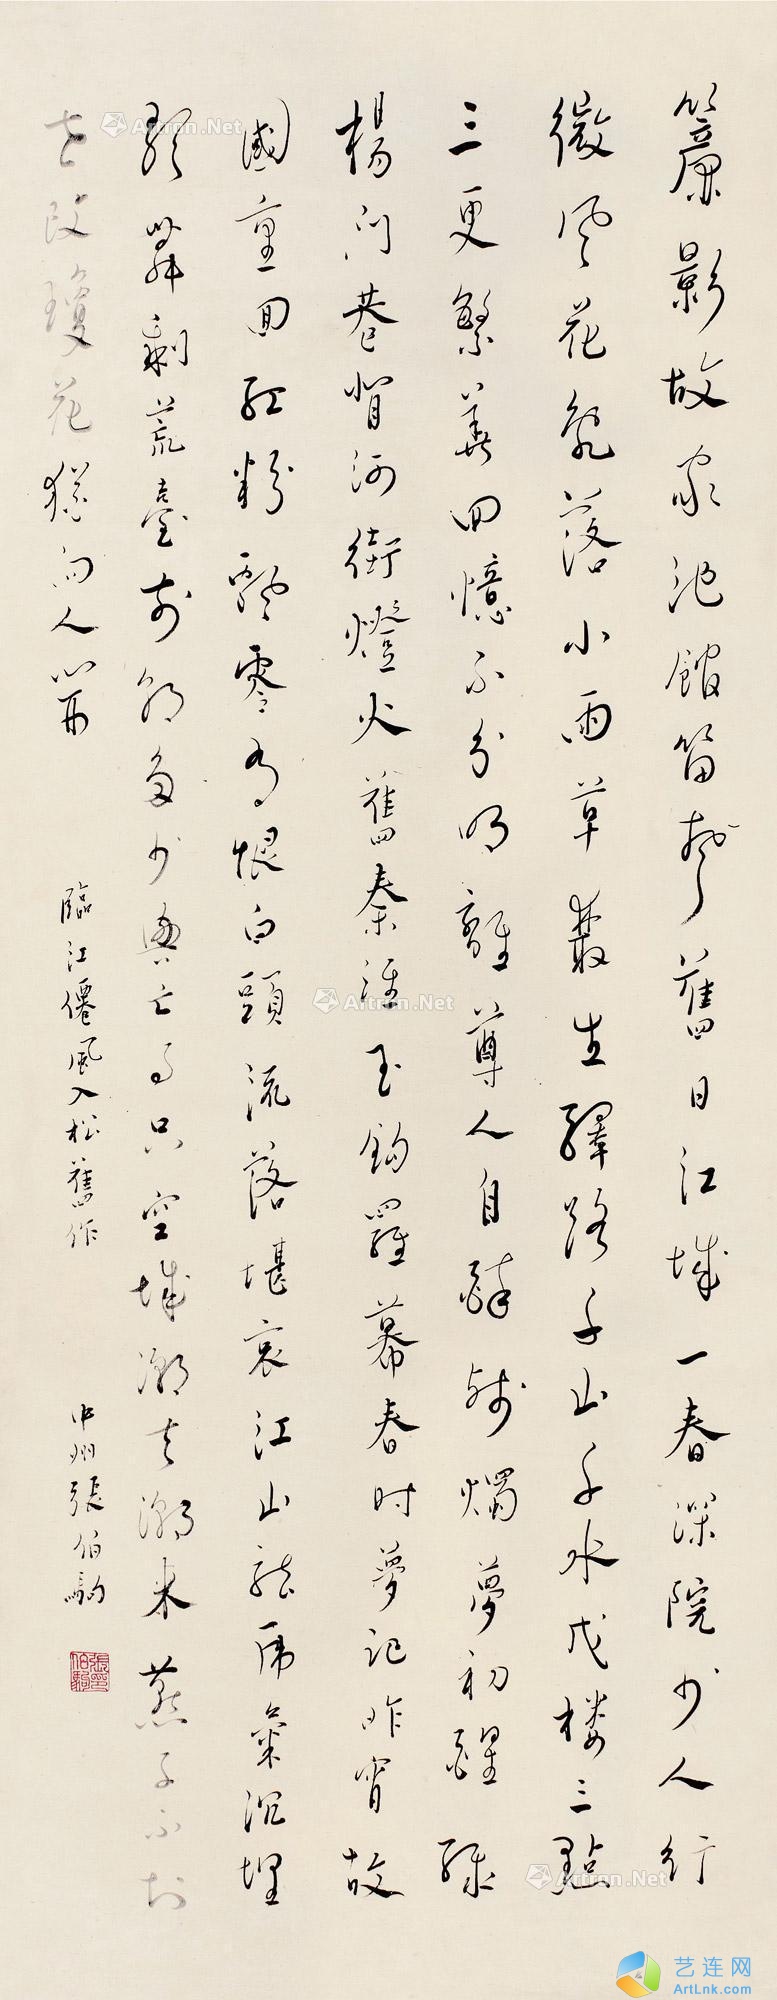 簾影故家池館笛聲舊日江城一春深院少人行
微風花亂落小雨草叢生驛路千山千水戍樓三點
三更繁華回憶不分明離尊人自醉殘燭夢初醒綠
楊門巷背河街燈火舊秦淮玉鉤羅幕春時夢記昨宵故
國重回紅粉飄零有恨白頭流落堪哀江山龍虎氣沉埋
歌舞剩荒臺前朝多少興亡事只空城潮去潮來燕子不知
世改瓊花猶向人開
臨江僊風入松舊作
中州張伯駒
張伯駒印
Artron.Net
Artron.Net
Artron.Net
艺连网
ArtLnk.com